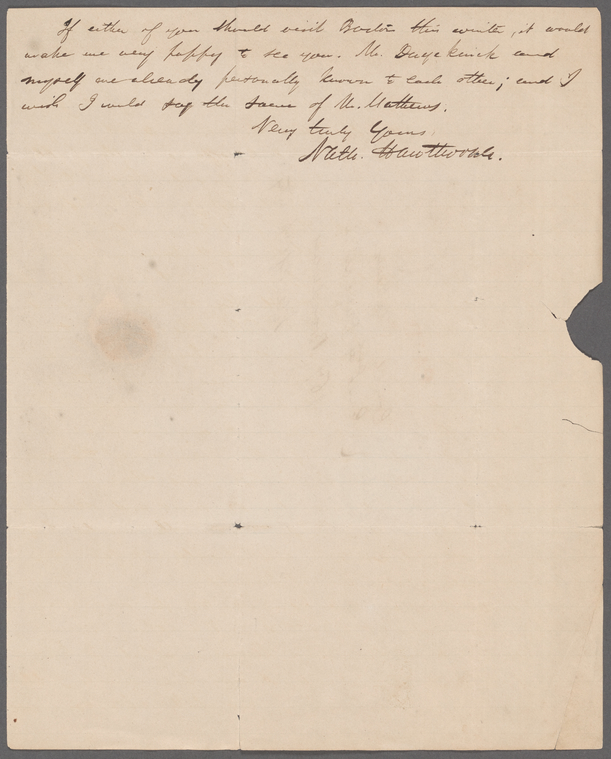 If either of you should visit Boston this winter, it would
make me very happy to see you. Mr. Duyckinck and
myself are already personally known to each other; and I
wish I could say the same of Mr. Mathews.
Very truly Yours,
Nath. Hawthorne.